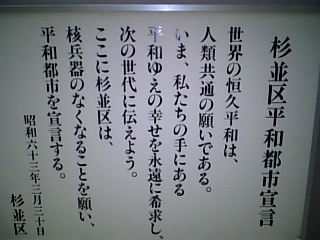 杉並区平和都市宣言
世界の恒久平和は、
人類共通の願いである。
いま、私たちの手にある
平和ゆえの幸せを永遠に希求し、
次の世代に伝えよう。
ここに杉並区は、
核兵器のなくなることを願い、
平和都市を宣言する。
昭和六十三年三月三十日
杉並区